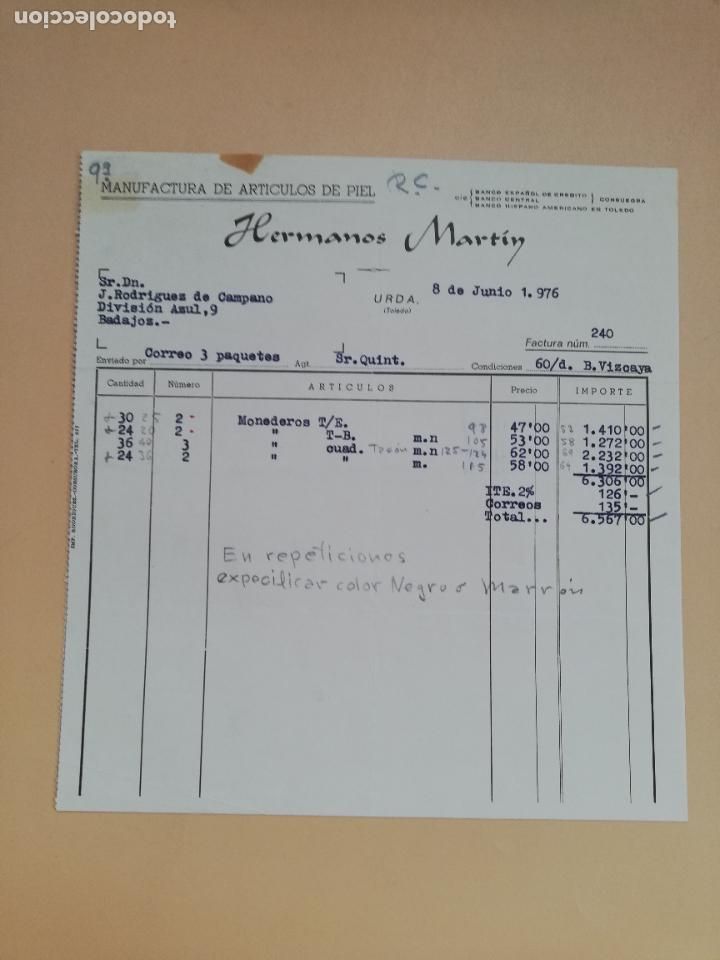 todocoleccion
93
MANUFACTURA DE ARTICULOS DE PIEL
R.C.
c/c BANCO ESPAÑOL DE CREDITO
BANCO CENTRAL CONSUEGRA
BANCO HISPANO AMERICANO EN TOLEDO
Hermanos Martín
Sr.Dn.
J.Rodriguez de Campano
División Azul,9
Badajoz.-
URDA, 8 de Junio 1.976
(Toledo)
Factura núm. 240
Enviado por Correo 3 paquetes Agt. Sr.Quint. Condiciones 60/d. B.Vizcaya
Cantidad Número ARTICULOS Precio IMPORTE
+30 25 2 - Monederos T/E. 98 47'00 52 1.410'00
+24 20 2 - " T-B. m.n 105 53'00 58 1.272'00
36 40 3 " cuad. m.n 125-124 62'00 1.2.232'00
+24 36 2 " " m. 115 58'00 64 1.392'00
6.306'00
ITE.2% 126'-
Correos 135'-
Total... 6.567'00
En repeticiones
expecificar color Negro o Marrón